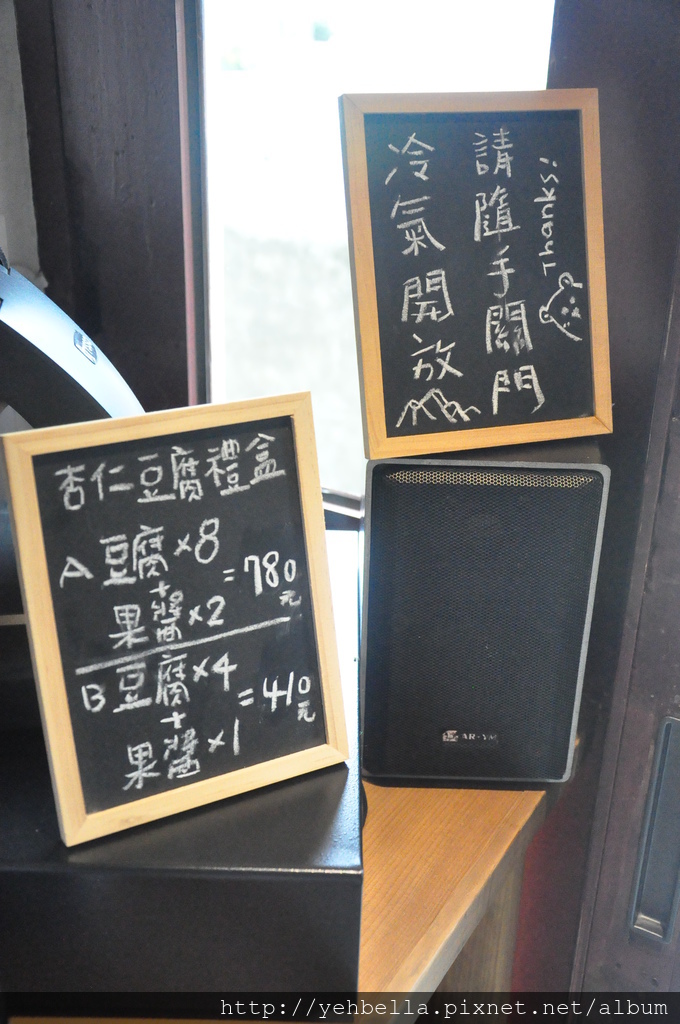 冷氣開放
請隨手關門
Thanks!
杏仁豆腐禮盒
A 豆腐×8
+
果醬×2
=780元
B 豆腐×4
+
果醬×1
=410元
http://yehbella.pixnet.net/album